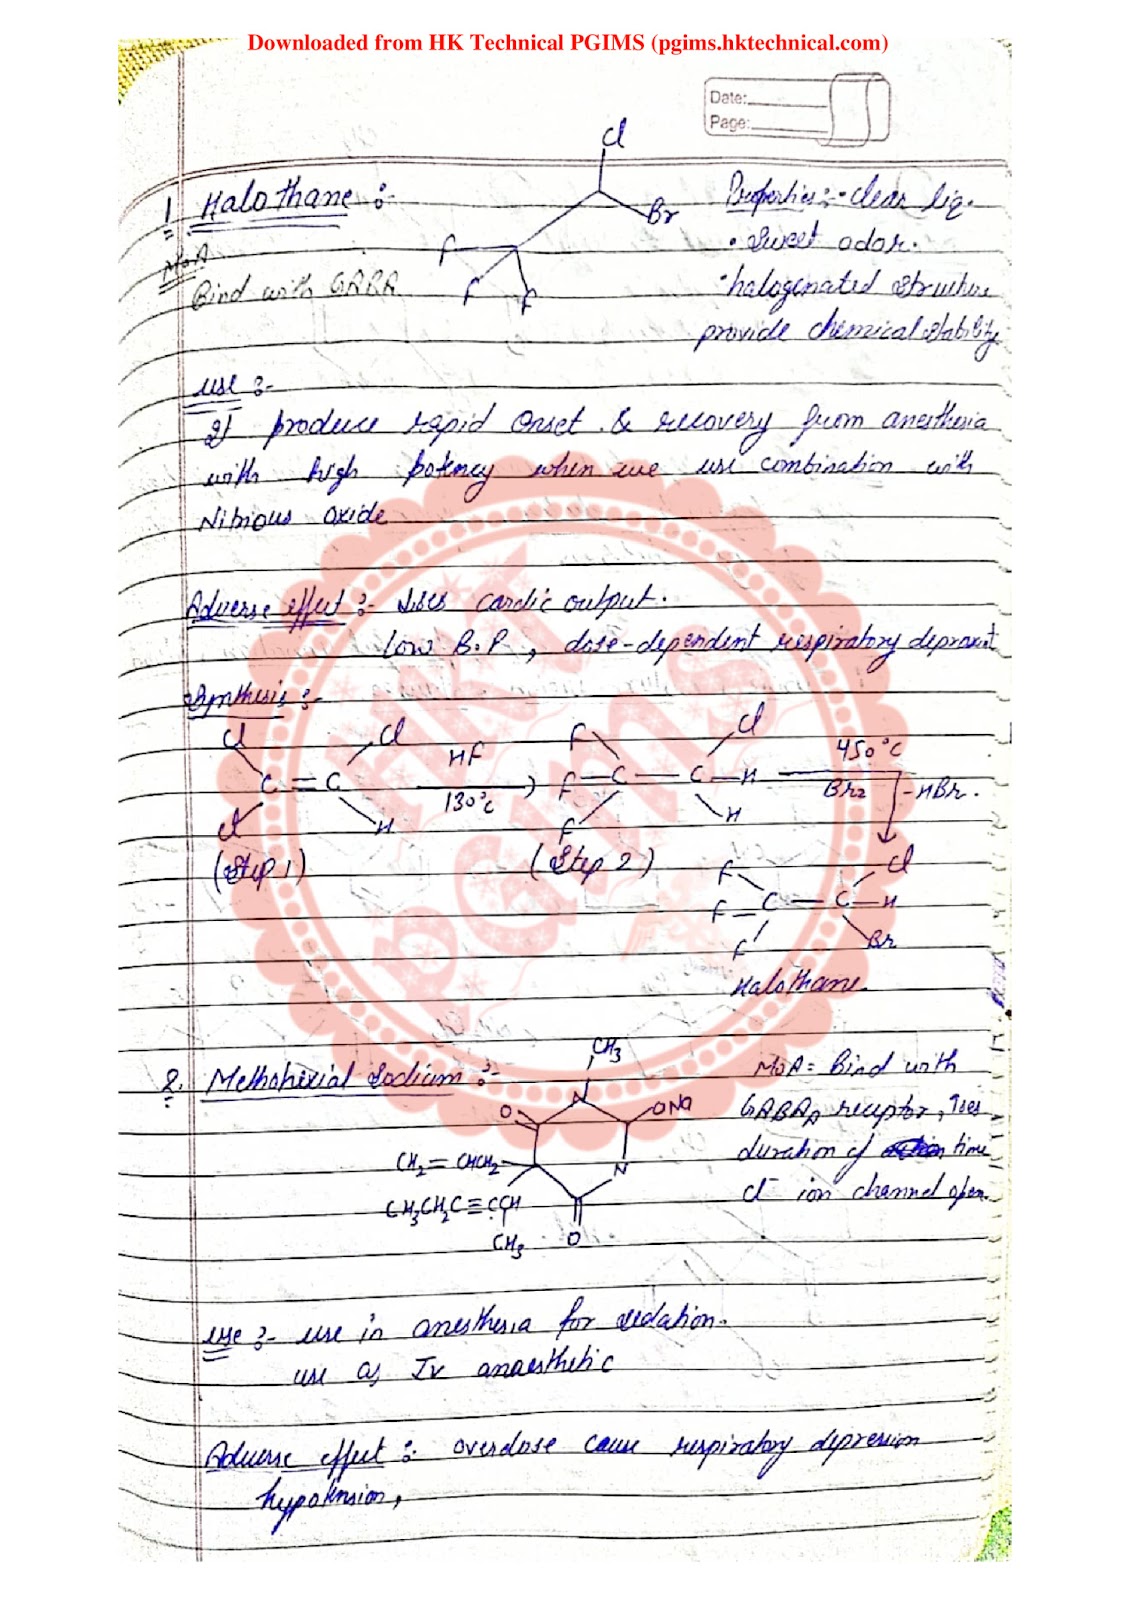 Downloaded from HK Technical PGIMS (pgims.hktechnical.com)
Date:
Page:
1 Halothane :-
Cl
Br
F
F
F
Properties :- • clear liq.
• Sweet odor.
• halogenated structure
provide chemical stability
MoA
Bind with GABA
use :-
It produce rapid onset & recovery from anesthesia
with high potency when we use combination with
Nitrious oxide
Adverse effect :- cardic output.
low B.P, dose-dependent respiratory
Synthesis :-
Cl Cl
C = C
Cl H
HF
130°C
F Cl
F C — C H
F H
450°C
Br2
-HBr.
(Step 1)
(Step 2)
F Cl
F C — C H
F Br
Halothane.
HK
PGIMS
2. Methohexial Sodium :-
CH3
N
O
ONa
CH2 = CHCH2
N
CH3CH2C≡CCH
CH3
O
MoA = Bind with
GABAA receptor, ↑ses
duration of time
Cl- ion channel open.
use :- use in anesthesia for sedation.
use as Iv anaesthetic
Adverse effect :- overdose cause respiratory depression
hypotension,